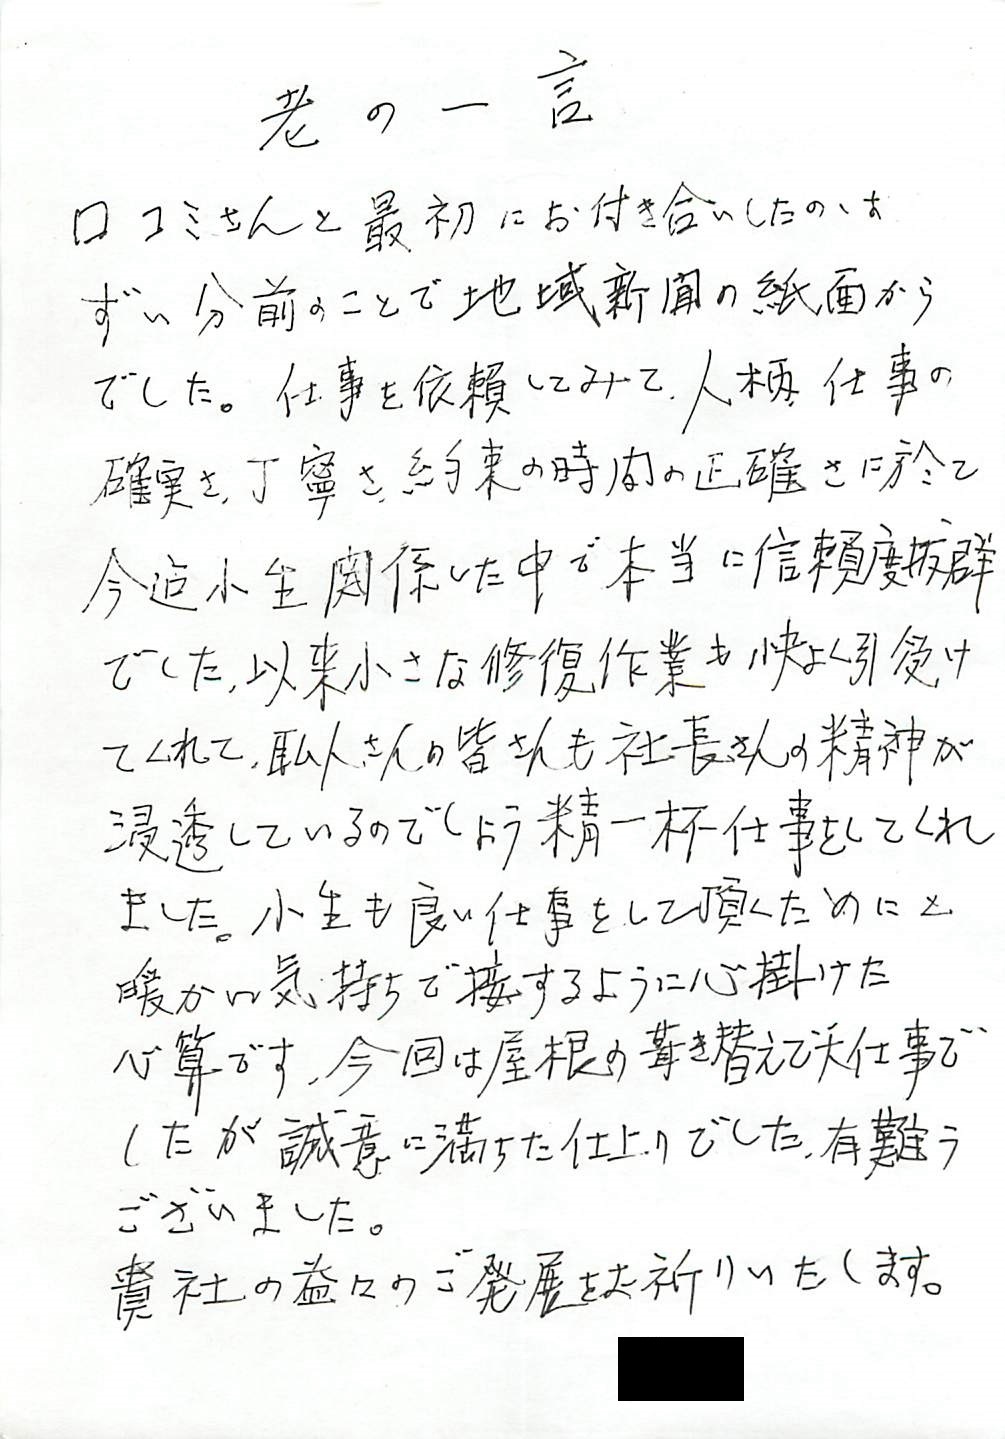 老の一言
口コミさんと最初にお付き合いしたのは
ずい分前のことで地域新聞の紙面から
でした。仕事を依頼してみて、人柄、仕事の
確実さ、丁寧さ、約束の時間の正確さに於て
今迄小生関係した中で本当に信頼度抜群
でした、以来小さな修復作業も快よく引受け
てくれて、職人さんの皆さんも社長さんの精神が
浸透しているのでしょう精一杯仕事をしてくれ
ました。小生も良い仕事をして頂くためにと
暖かい気持ちで接するように心掛けた
心算です、今回は屋根の葺き替えで大仕事で
したが誠意に満ちた仕上りでした、有難う
ございました。
貴社の益々のご発展をお祈りいたします。